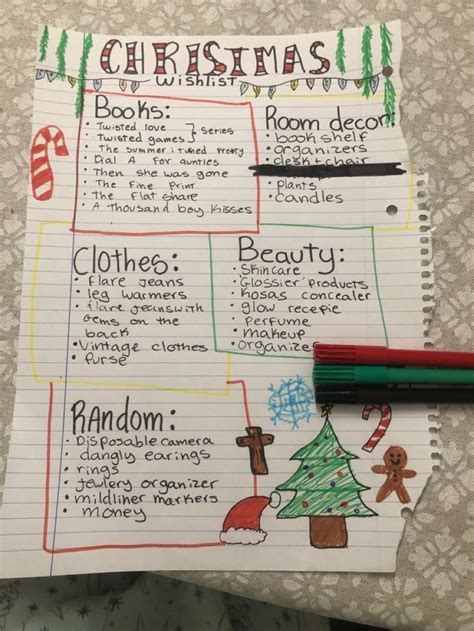 CHRISTMAS
Wishlist
Books:
• Twisted love
• Twisted games
series
• The summer i turned pretty
• Dial A for aunties
• Then she was gone
• The Fine Print
• The flat share
• A thousand boy kisses
Room decor:
• book shelf
• organizers
• desk + chair
• plants
• candles
Clothes:
• flare jeans
• leg warmers
• flare jeans with
Gems on the
back
• Vintage clothes
• purse
Beauty:
• Skincare
• Glossier products
• Kosas concealer
• glow recepie
• perfume
• makeup
• organizer
RAndom:
• Disposable camera
• dangly earings
• rings
• jewlery organizer
• mildliner markers
• money